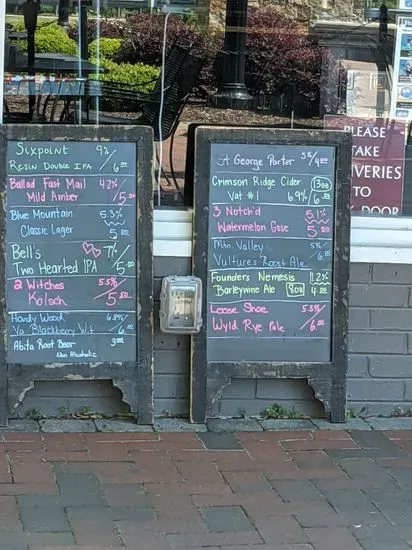 Sixpoint 9%
Resin Double IPA / 6.00
Ballad Fast Mail 4.2%
Mild Amber / 5.00
Blue Mountain 5.3%
Classic Lager 5.00
Bell's 7%
Two Hearted IPA / 5.00
2 Witches 5.5%
Kolsch / 5.50
Hardy Wood 6.8%
VA Blackberry Wit / 6.00
Abita Root Beer 3.00
Non Alcoholic
St George Porter 5%/4.00
Crimson Ridge Cider 13oz
Vat #1 6.9%/6.00
3 Notch'd 5.1%
Watermelon Gose 5.00
Mtn. Valley 5%
Vultures Roost Ale / 6.00
Founders Nemesis 11.2%
Barleywine Ale 8oz 4.00
Loose Shoe 5.5%
Wyld Rye Pale / 6.00
PLEASE
TAKE
VERIES
TO
DOOR